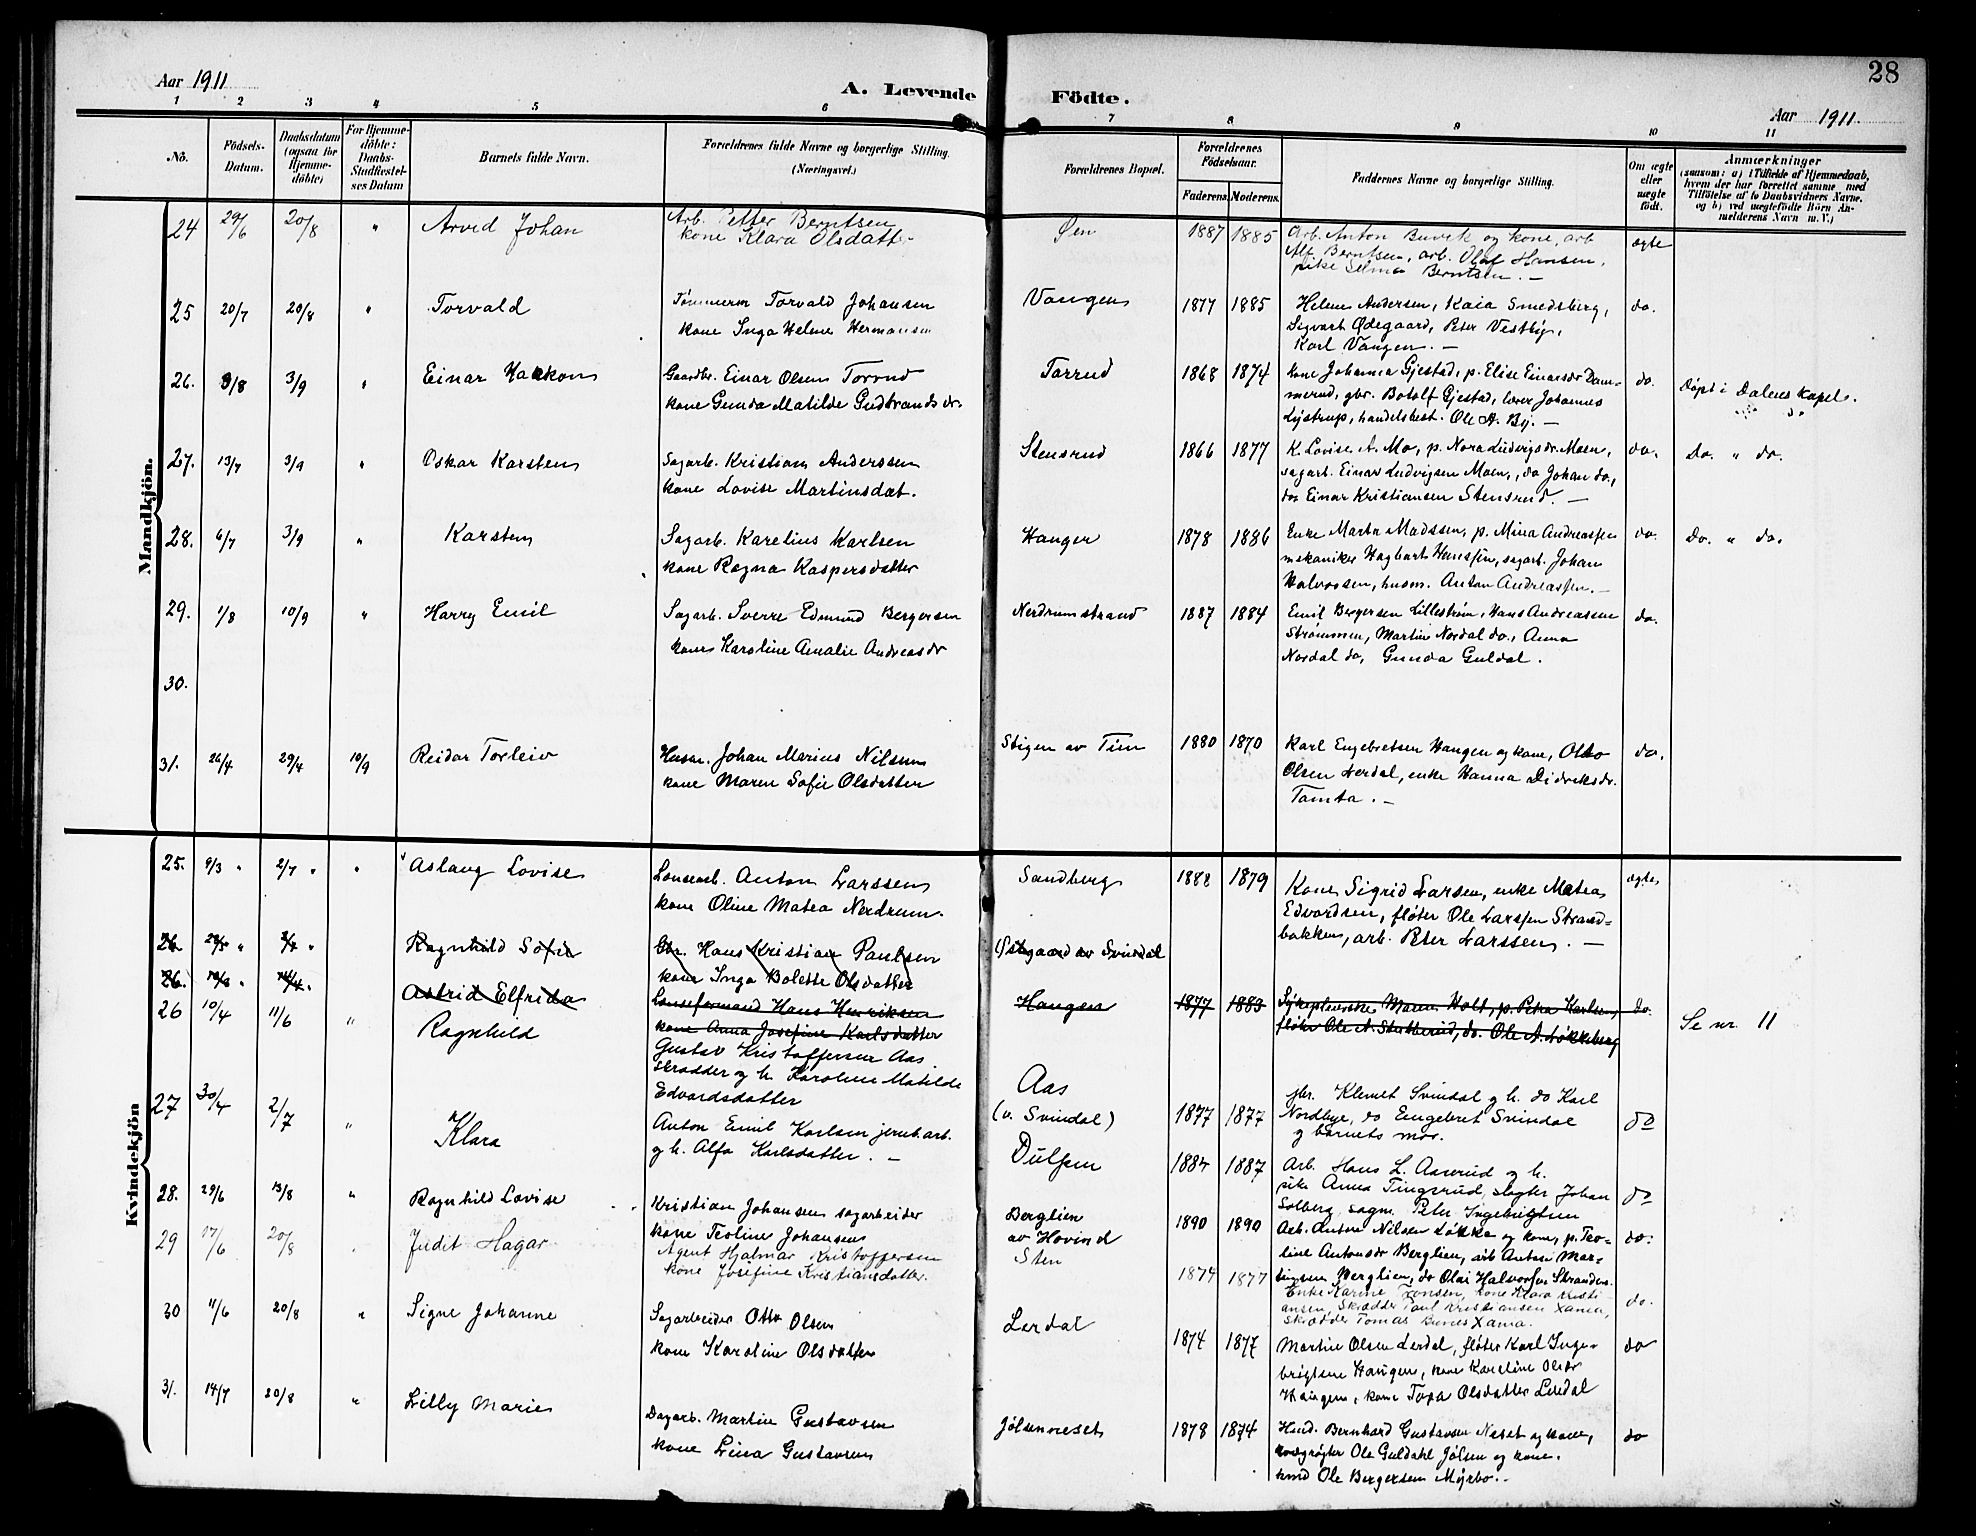 28
Aar 1911
A. Levende Födte.
Aar 1911
1 2 3 4 5 6 7 8 9 10 11
No.
Födsels-
Datum.
Daabsdatum
(ogsaa for
Hjemme-
döbte)
For Hjemme-
döbte:
Daabs-
Stadfæstel-
ses Datum
Barnets fulde Navn.
Forældrenes fulde Navne og borgerlige Stilling.
(Næringsvei.)
Forældrenes Bopæl.
Forældrenes
Födselsaar.
Faderens. Moderens.
Faddernes Navne og borgerlige Stilling.
Om ægte
eller
uægte
födt.
Anmærkninger
(saasom: a) i Tilfælde af Hjemmedaab,
hvem der har forrettet samme med
Tilföielse af to Daabsvidners Navne.
og b) ved uægtefödte Börn An-
melderens Navn m. V.)
Mandkjön.
24 29/6 20/8 " Arvid Johan
Arb. Petter Berntsen
kone Klara Olsdatter
Øen 1887 1885
Arb. Anton Buvik og kone, arb.
Alf. Berntsen, arb. Olaf Hansen,
pike Selma Berntsen. —
ægte
25 20/7 20/8 " Torvald
Tømmerm Torvald Johansen
kone Inga Helene Hermansen
Vangen 1877 1885
Helene Andersen, Kaia Smedsberg,
Sigvart Ødegaard, Peter Vestby,
Karl Vangen. —
do.
26. 9/8 3/9 " Einar Haakon
Gaardbr. Einar Olsen Torrud
kone Gunda Matilde Gudbrandsdr.
Torrud 1868 1874
kone Johanna Gjestad, p. Elise Einarsdr Dam-
merud, gbr. Botolf Gjestad, lærer Johannes
Lystrup, handelsbest. Ole A. By. —
do. Døpt i Dalens kapel.
27. 13/7 3/9 " Oskar Karsten
Sagarb. Kristian Anderssen
kone Lovise Martinsdat.
Stensrud 1866 1877
K. Lovise A. Mo, p. Nora Ludvigsdr. Moen,
sagarb. Einar Ludvigsen Moen, do Johan do,
do Einar Kristiansen Stensrud. —
do. Do. " do.
28. 6/7 3/9 " Karsten
Sagarb. Karelius Karlsen
kone Ragna Kaspersdatter
Hanger 1878 1886
Enke Marta Madssen, p. Mina Andreassen
mekaniker Hagbart Hanssen, sagarb. Johan
Halvorsen, husm. Anton Andreassen. —
do. Do. " do.
29. 1/8 10/9 " Harry Emil
Sagarb. Sverre Edmund Bergersen
kone Karoline Amalie Andreasdr
Nerdrumstrand 1887 1884
Emil Bergersen Lillestrøm, Hans Andreassen
Strømmen, Martin Nordal do., Anna
Nordal do, Gunda Guldal.
do.
30.
31. 26/4 29/4 10/9 Reidar Torleiv
Husm. Johan Marius Nilsen
kone Maren Sofie Olsdatter
Stigen av Tien 1880 1870
Karl Engebretsen Hangen og kone, Otto
Olsen Lerdal, enke Hanna Didriksdr.
Tomta. —
do.
Kvindekjön
25. 9/3 " 2/7 " " Aslaug Lovise
Lænsearb. Anton Larssen
kone Oline Matea Nerdrum.
Sandberg 1888 1879
Kone Sigrid Larsen, enke Matea
Edvardsen, fløter Ole Larssen Strand-
bakken, arb. Peter Larssen. —
ægte
26. Ragnhild Sofie
Gbr. Hans Kristian Paulsen
kone Inga Bolette Olsdatter
Østgaard av Svindal
26. Astrid Elfrida
Lænseformand Hans Henriksen
kone Anna Josefine Karlsdatter
Haugen 1877 1883
Sykepleierske Maren Holt, p. Petra Karlsen,
fløter Ole A. Stutterud, do. Ole A. Løkkeberg
do.
Se nr. 11
26 10/4 11/6 " Ragnhild
Gustav Kristoffersen Aas
skrædder og h. Karoline Matilde
Edvardsdatter
Aas
(v. Svindal) 1877 1877
gbr. Klemet Svindal og h. do Karl
Nordbye, do Engebret Svindal
og barnets mor.
do
27 30/4 2/7 " Klara
Anton Emil Karlsen jernb.arb.
og h. Alfa Karlsdatter. —
Dulpen 1884 1887
Arb. Hans L. Aaserud og h.
pike Anna Tingsrud, slagter Johan
Solberg, sagm. Peter Ingebrigtsen
do
28. 29/6 13/8 " Ragnhild Lovise
Kristian Johansen sagarbeider
kone Teoline Johansen
Berglien
av Hovind 1890 1890
Arb. Anton Nilsen Løkke og kone, p. Teo-
line Antonsdr Berglien, arb Anton Mar-
tinsen Berglien, do Olai Halvorsen Stranden.
do.
29 17/6 20/8 " Judit Hagar
Agent Hjalmar Kristoffersen
kone Josefine Kristiansdatter.
Sten 1874 1877
Enke Karine Tønsen, kone Klara Kristi-
ansen, Skrædder Paul Kristiansen Xania,
skrædder Tomas Xania.
do.
30 11/6 20/8 " Signe Johanne
Sagarbeider Otto Olsen
kone Karoline Olsdatter
Lerdal 1874 1877
Martin Olsen Lerdal, fløter Karl Inge-
brigtsen Haugen, kone Karoline Olsdr
Haugen, kone Topa Olsdatter Lerdal
do
31. 14/7 20/8 " Lilly Marie
Dagarb. Martin Gustavsen
kone Lina Gustavsen
Jølsenneset 1878 1874
Husd. Bernhard Gustavsen Neset og kone,
Ole Guldahl Jølsen og kone.
Ole Bergersen Myrbo. -
do